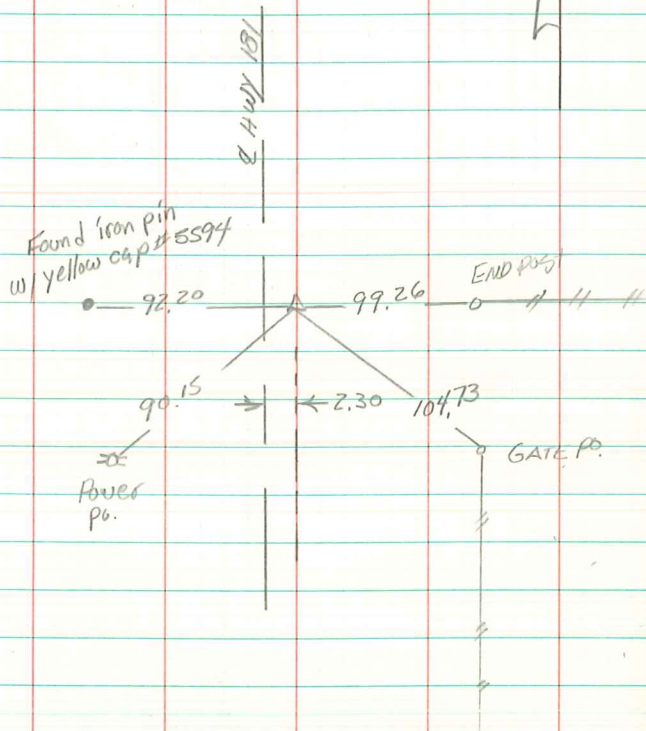 ℄ HWY 181
Found iron pin
w/ yellow cap #5594
END post
92.20
99.26
90.15
2.30
104.73
GATE PO.
Power
po.